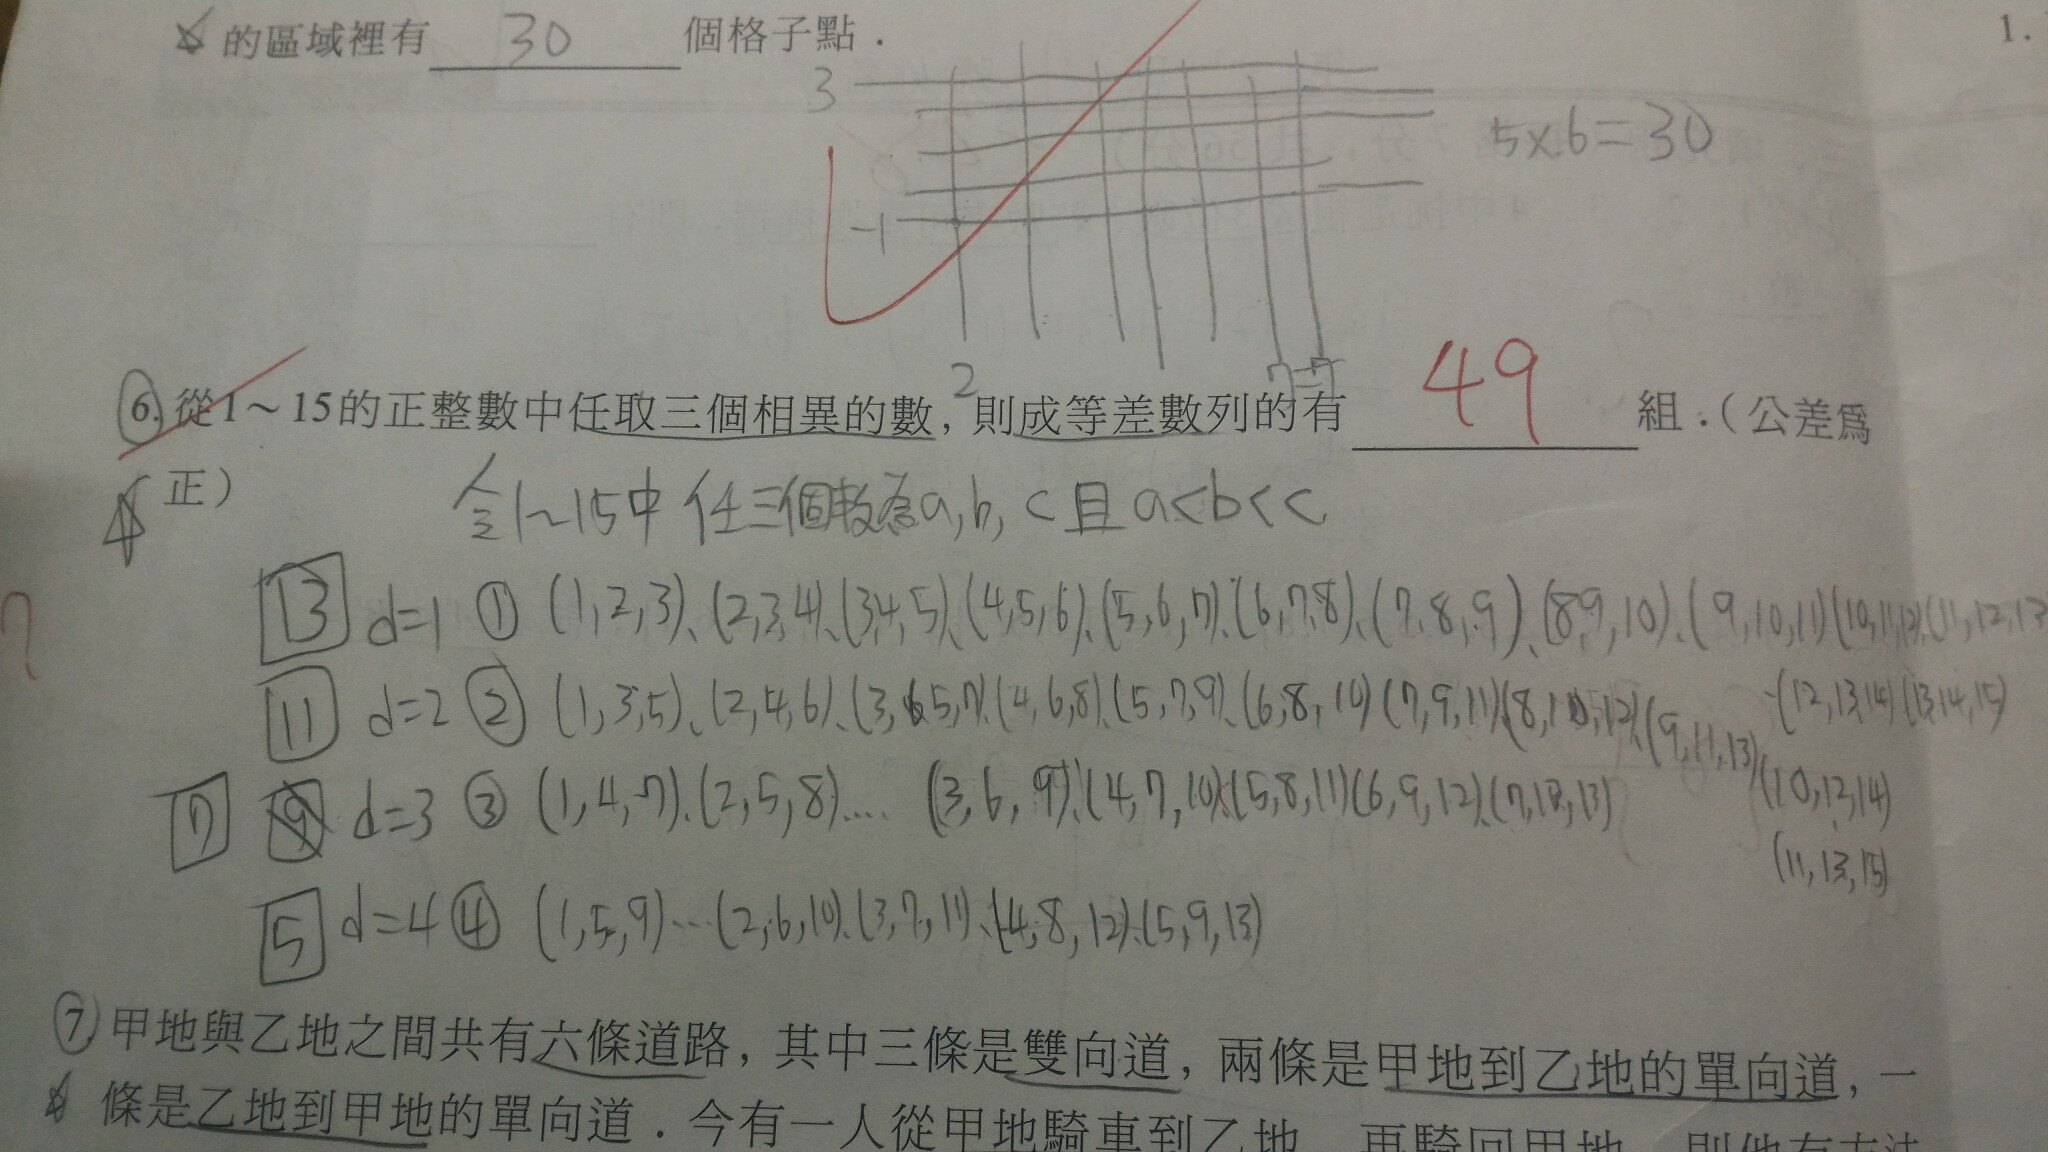 的區域裡有 30 個格子點.
1.
3
5×6=30
-1
2
7
⑥.從1~15的正整數中任取三個相異的數,則成等差數列的有 49 組.(公差爲
正)
令1~15中任三個數為a,b,c且a<b<c
13 d=1 ① (1,2,3)、(2,3,4)、(3,4,5)、(4,5,6)、(5,6,7)、(6,7,8)、(7,8,9)、(8,9,10)、(9,10,11)(10,11,12)、(11,12,13
(12,13,14)(13,14,15)
11 d=2 ② (1,3,5)、(2,4,6)、(3,5,7)、(4,6,8)、(5,7,9)、(6,8,10)(7,9,11)(8,10,12)、(9,11,13)
(10,12,14)
(11,13,15)
7 9 d=3 ③ (1,4,7)、(2,5,8)…. (3,6,9)、(4,7,10)、(5,8,11)(6,9,12)、(7,10,13)
5 d=4 ④ (1,5,9)…(2,6,10)、(3,7,11)、(4,8,12)、(5,9,13)
⑦.甲地與乙地之間共有六條道路,其中三條是雙向道,兩條是甲地到乙地的單向道,一
條是乙地到甲地的單向道.今有一人從甲地騎車到乙地,再騎回甲地,則他有方法